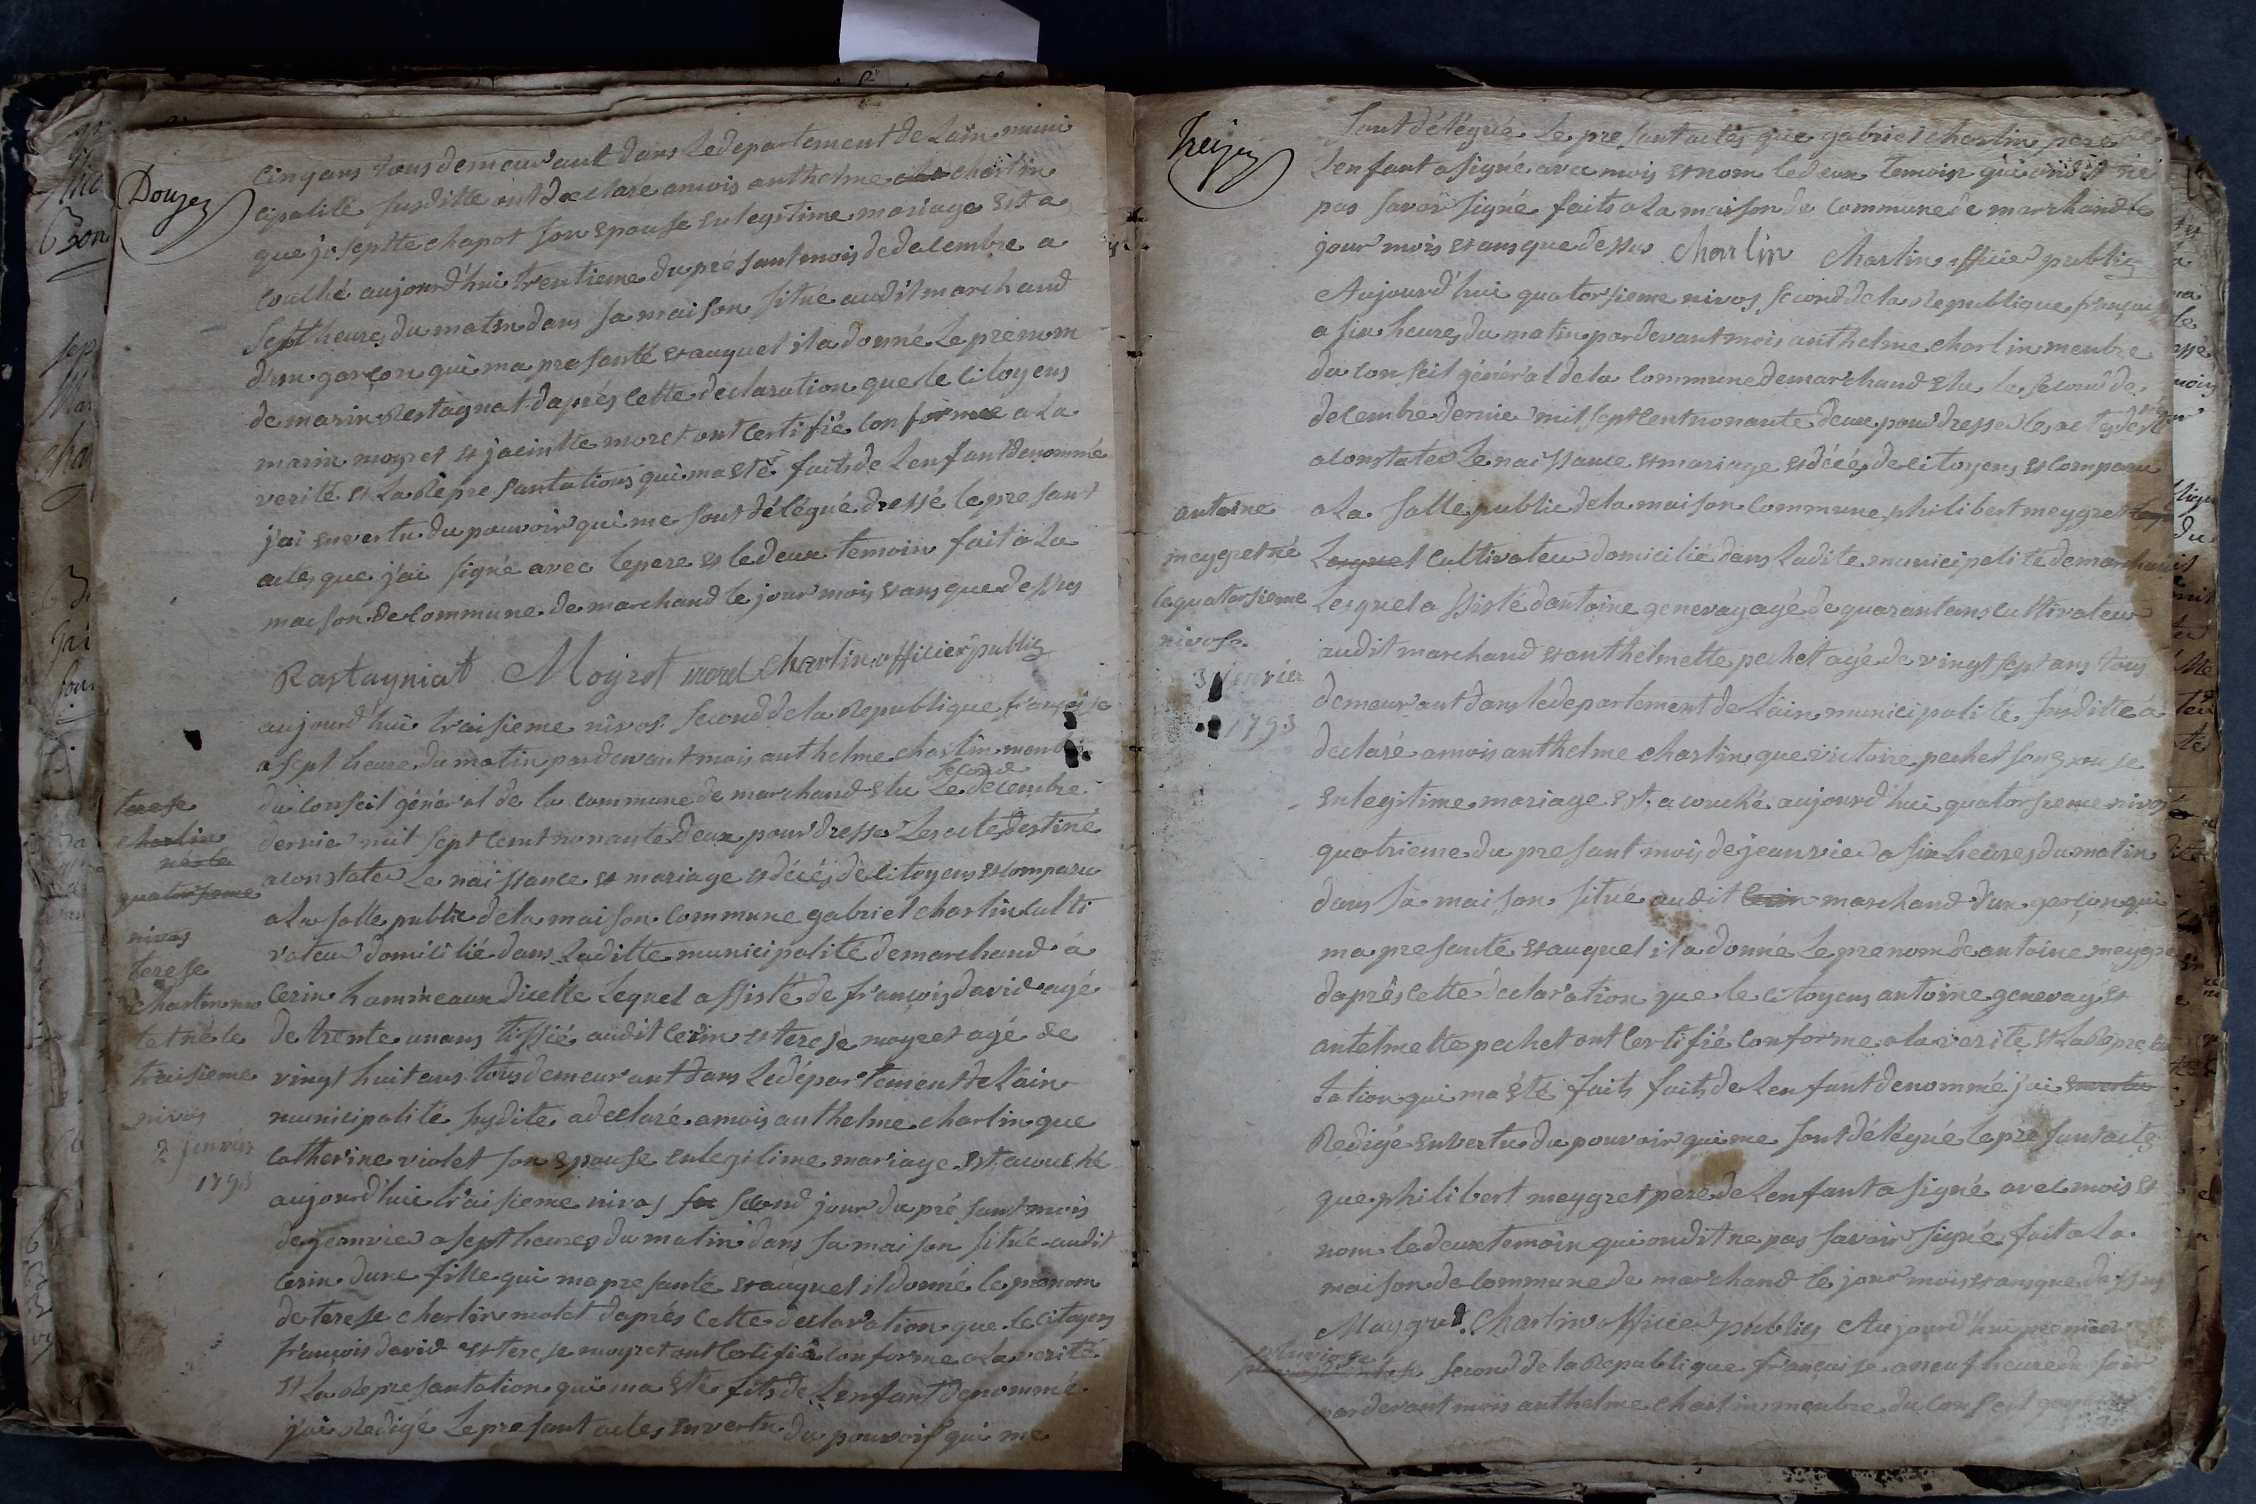 Douzes
cinq ans tous demeurant dans le departement de Lain muni
cipalité susditte ont declaré a mois anthelme charlin
que josephtte chapot son epouse en legitime mariage est a
couché aujourd'hui trentieme du présant mois de decembre a
sept heures du matin dans sa maison situé audit marchand
d'un garçon qui ma presanté et auquel il a donné le prénom
de marin Restagnat daprés cette declaration que le citoyens
marin moyret et jacinthe moret ont certifié conforme a la
verité et la Represantations qui ma eté faits de lenfant denommé
j'ai en vertu du pouvoir qui me sont délégué dressé le presant
actes que j'ai signé avec le pere et le deux temoin fait a la
maison de commune de marchand le jour mois et ans que dessus
Rastayniat Moyrot morel charlin officier public
aujourd'hui traisieme nivos second de la Republique française
a sept heure du matin par devant mois anthelme charlin menbre
du conseil général de la commune de marchand elu le seconde decembre
dernie mil sept cent nonante deux pour dresser les acte destiné
a constater le naissance et mariage et décés de citoyens et comparu
a la salle public de la maison commune gabriel charlin culti
vateur domicilié dans laditte municipalité de marchand á
Cerin hamineaux dicelle lequel assisté de françois david agé
de trente un ans tissié audit Cerin et terese moyret agé de
vingt huit ans tous demeurant dans le département de Lain
municipalité susdite a declaré a mois anthelme charlin que
Catherine violet son epouse en legitime mariage est acouché
aujourd'hui traisieme nivos second jour du présant mois
de jeanvier a sept heures du matin dans sa maison situé audit
Cerin dune fille qui ma presanté et auquel il donné le prénom
de terese charlin motet daprés cette declaration que le citoyens
françois david et terese moyret ont certifié conforme a la verité
et la Represantation qui ma eté fits de lenfant denommé
j'ai Redigé le presant actes en vertu du pouvoir qui me
terese
charlin
née le
quatorsieme
nivos
terese
charlin mo
tet né le
traisieme
nivos
2 janvier
1793
Treizes
sont délégué le presant actes que gabriel charlin pere de
lenfant a signé avec mois et nom le deux temoin qui ondit ne
pas savoir signé faits a la maison de commune de marchand le
jour mois et ans que dessus charlin charlin officier public
Aujourd'hui quatorsieme nivos second de la Republique française
a six heures du matin par devant mois anthelme charlin menbre
du conseil général de la commune de marchand elu le second de
decembre dernie mil sept cent nonante deux pour dresser les actes destiné
a constater le naissance et mariage et décés de citoyens et comparu
a la salle public de la maison commune philibert meygret
Lequel cultivateur domicilié dans ladite municipalité de marchand
Lequel assisté dantoine genevay agé de quarante ans cultivateur
audit marchand et anthelmette pechet agé de vingt sept ans tous
demeurant dans le departement de Lain municipalité susditte á
declaré a mois anthelme charlin que victoire pechet son epouse
en legitime mariage est acouché aujourd'hui quatorsieme nivos
quatrieme du presant mois de jeanvier a six heures du matin
dans sa maison situé audit Cerin marchand d'un garçon qui
ma presanté et auquel il a donné le prenom de antoine meygret
daprês cette déclaration que le citoyens antoine genevay et
antelmette pechet ont certifié conforme a la verité et la Represan
tation qui ma été faits faits de lenfant denommé j'ai en vertu
Redigé en vertu du pouvoir qui me sont délégué le presant actes
que philibert meygret pere de lenfant a signé avec mois et
nom le deux temoin qui ondit ne pas savoir signé fait a la
maison de commune de marchand le jour mois et ans que dessus
Maygret Charlin officier public Aujourd'hui premier
pluviose second de la Republique française a neuf heure du soir
par devant mois anthelme charlin menbre du conseil general
antoine
meygret né
le quatorsieme
nivose
3 janvier
1793